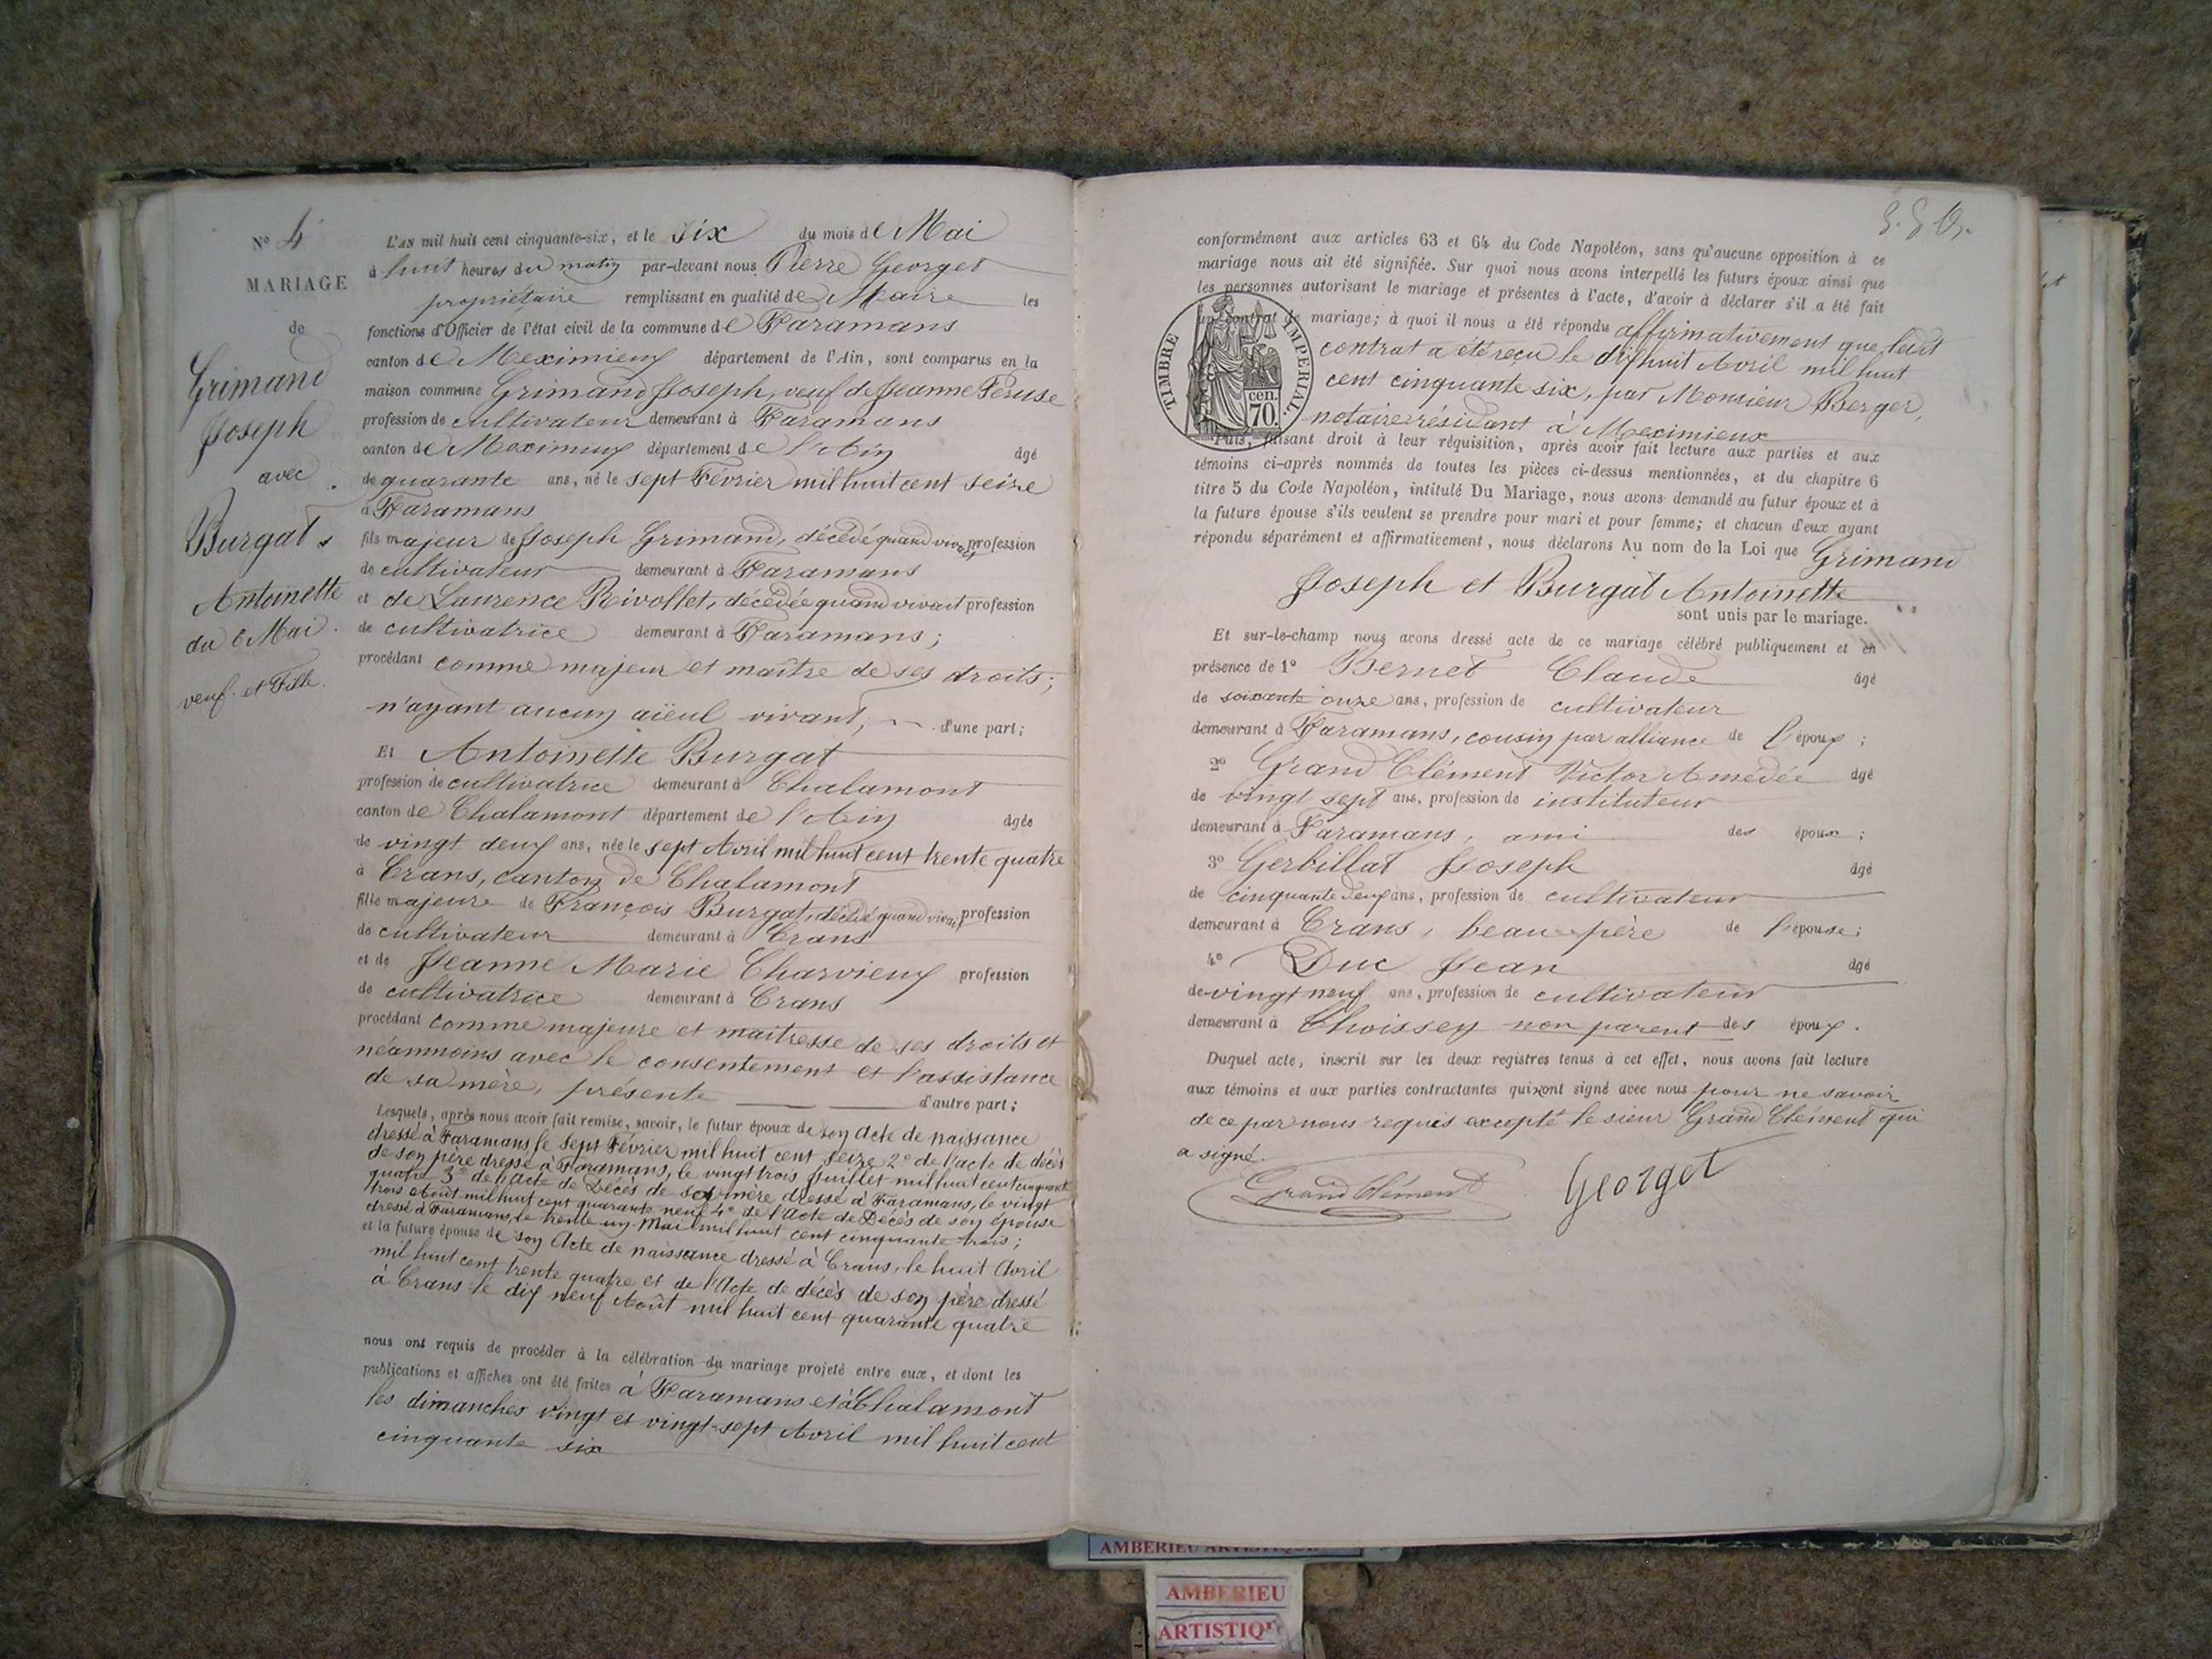 N° 4
MARIAGE
de
Grimand
Joseph
avec
Burgat
Antoinette
du 6 Mai.
veuf et Fille.
L'an mil huit cent cinquante-six, et le six du mois de Mai
à huit heures du matin par-devant nous Pierre Georget
propriétaire remplissant en qualité de Maire les
fonctions d'Officier de l'état civil de la commune de Faramans
canton de Meximieux département de l'Ain, sont comparus en la
maison commune Grimand Joseph, veuf de Jeanne Péruse
profession de cultivateur demeurant à Faramans
canton de Meximieux département de l'Ain âgé
de quarante ans, né le sept Février mil huit cent seize
à Faramans
fils majeur de Joseph Grimand, décédé quand vivait profession
de cultivateur demeurant à Faramans
et de Laurence Rivollet, décédée quand vivait profession
de cultivatrice demeurant à Faramans;
procédant comme majeur et maître de ses droits;
n'ayant aucun aïeul vivant, d'une part;
Et Antoinette Burgat
profession de cultivatrice demeurant à Chalamont
canton de Chalamont département de l'Ain âgée
de vingt deux ans, née le sept Avril mil huit cent trente quatre
à Crans, canton de Chalamont
fille majeure de François Burgat, décédé quand vivait profession
de cultivateur demeurant à Crans
et de Jeanne Marie Charvieux profession
de cultivatrice demeurant à Crans
procédant comme majeure et maitresse de ses droits et
néamnoins avec le consentement et l'assistance
de sa mère, présente d'autre part;
Lesquels, après nous avoir fait remise, savoir, le futur époux de son acte de naissance
dressé à Faramans, le sept Février mil huit cent seize 2° de l'acte de décès
de son père dressé à Faramans, le vingt trois Juillet mil huit cent cinquante
quatre 3° de l'acte de Décès de sa mère dressé à Faramans, le vingt
trois Août mil huit cent quarante neuf 4° de l'Acte de Décès de son épouse
dressé à Faramans, le trente un Mai mil huit cent cinquante trois;
et la future épouse de son Acte de naissance dressé à Crans, le huit Avril
mil huit cent trente quatre et de l'Acte de décès de son père dressé
à Crans le dix neuf Août mil huit cent quarante quatre
nous ont requis de procéder à la célébration du mariage projeté entre eux, et dont les
publications et affiches ont été faites à Faramans et à Chalamont
les dimanches vingt et vingt-sept Avril mil huit cent
cinquante six
conformément aux articles 63 et 64 du Code Napoléon, sans qu'aucune opposition à ce
mariage nous ait été signifiée. Sur quoi nous avons interpellé les futurs époux ainsi que
les personnes autorisant le mariage et présentes à l'acte, d'avoir à déclarer s'il a été fait
un contrat de mariage; à quoi il nous a été répondu affirmativement que ledit
contrat a été reçu le dix huit Avril mil huit
cent cinquante six, par Monsieur Berger,
notaire résidant à Meximieux
TIMBRE IMPERIAL.
cen.
70.
Puis, faisant droit à leur réquisition, après avoir fait lecture aux parties et aux
témoins ci-après nommés de toutes les pièces ci-dessus mentionnées, et du chapitre 6
titre 5 du Code Napoléon, intitulé Du Mariage, nous avons demandé au futur époux et à
la future épouse s'ils veulent se prendre pour mari et pour femme; et chacun d'eux ayant
répondu séparément et affirmativement, nous déclarons Au nom de la Loi que Grimand
Joseph et Burgat Antoinette
sont unis par le mariage.
Et sur-le-champ nous avons dressé acte de ce mariage célébré publiquement et en
présence de 1° Bernet Claude âgé
de soixante onze ans, profession de cultivateur
demeurant à Faramans, cousin par alliance de l'époux;
2° Grand Clément Victor Amédée âgé
de vingt sept ans, profession de instituteur
demeurant à Faramans, ami des époux;
3° Gerbillat Joseph âgé
de cinquante deux ans, profession de cultivateur
demeurant à Crans, beau-père de l'épouse;
4° Duc Jean âgé
de vingt neuf ans, profession de cultivateur
demeurant à Choissey non parent des époux.
Duquel acte, inscrit sur les deux registres tenus à cet effet, nous avons fait lecture
aux témoins et aux parties contractantes qui n'ont signé avec nous pour ne savoir
de ce par nous requis excepté le sieur Grand Clément qui
a signé.
Grand Clément Georget
AMBERIEU ARTISTIQUE
AMBERIEU
ARTISTIQ